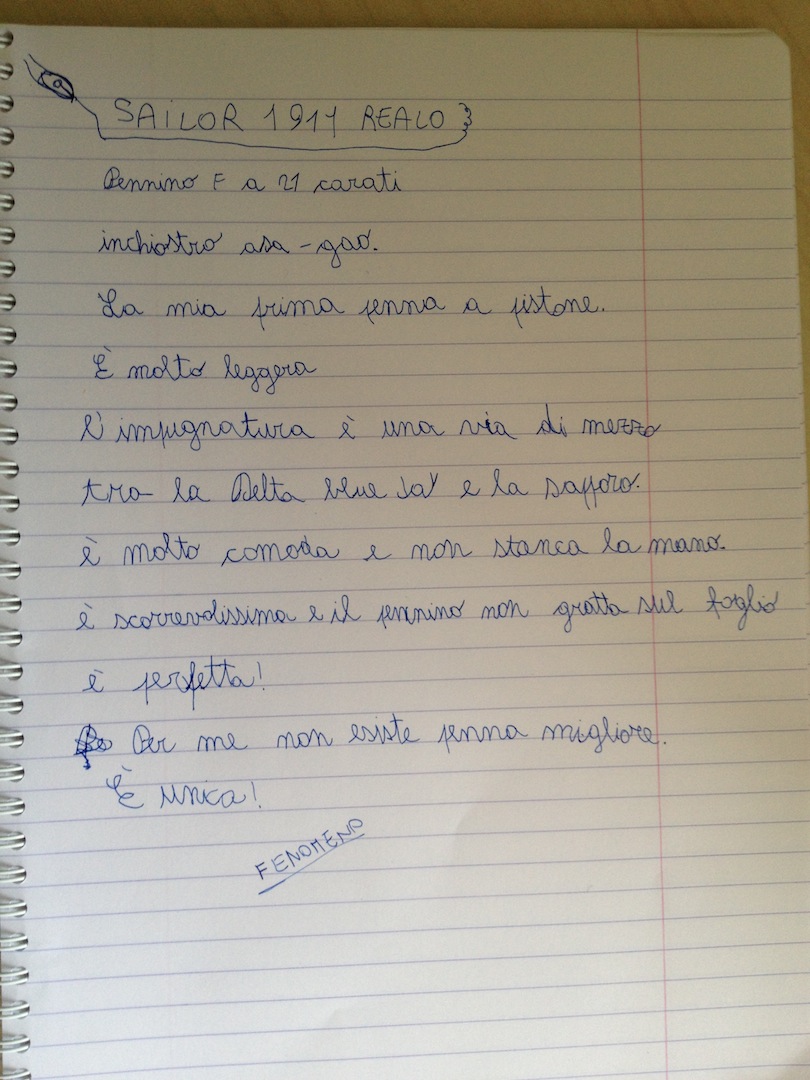 SAILOR 1911 REALO
Pennino F a 21 carati
inchiostro asa-gao.
La mia prima penna a pistone.
È molto leggera
l'impugnatura è una via di mezzo
tra la Delta blue Jay e la sapporo.
è molto comoda e non stanca la mano.
è scorrevolissima e il pennino non gratta sul foglio
è perfetta!
Per me non esiste penna migliore.
È unica!
FENOMENO